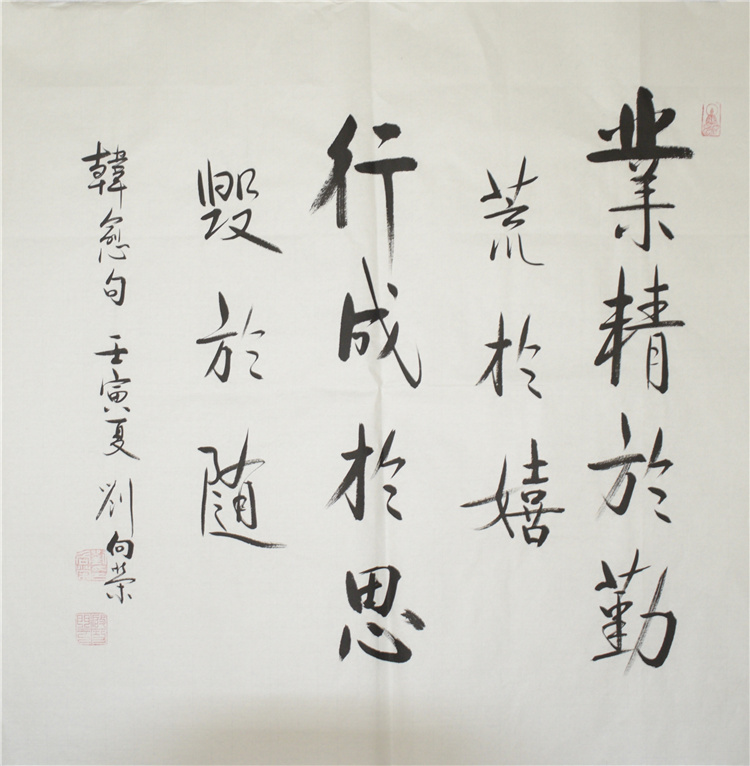 業精於勤
荒於嬉
行成於思
毀於随
韓愈句 壬寅夏 劉向荣